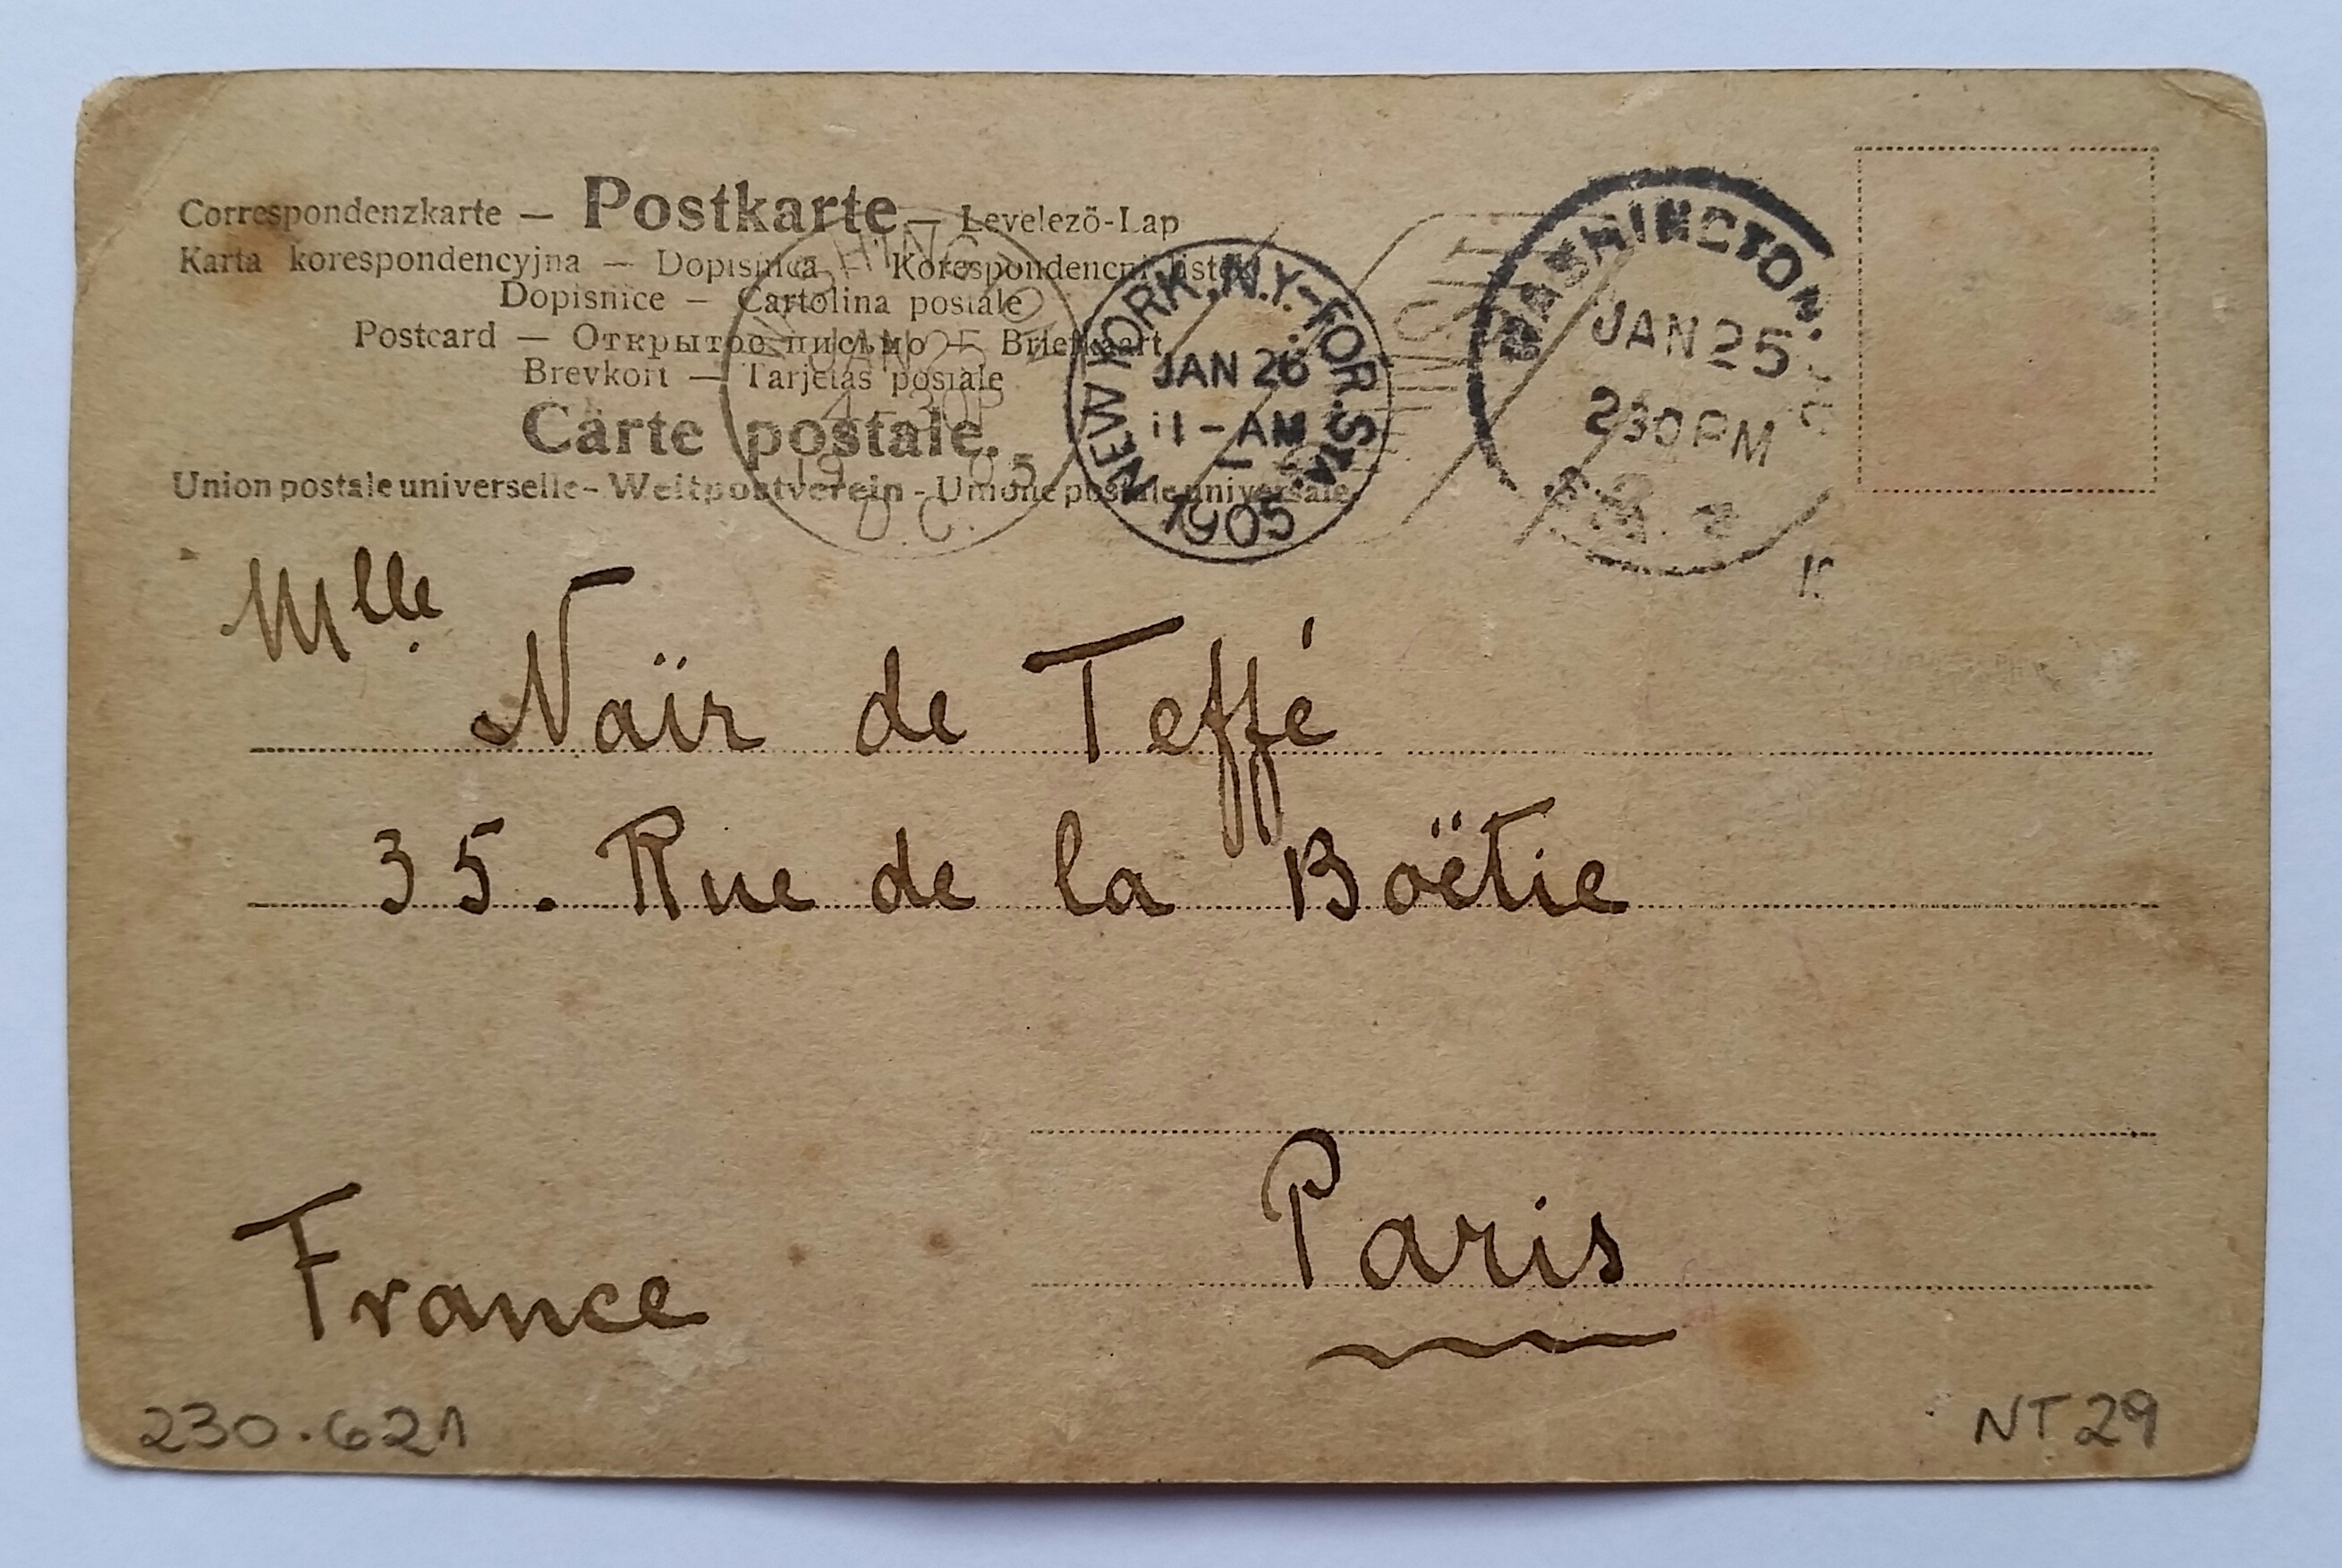 Correspondenzkarte — Postkarte — Levelező-Lap
Karta korespondencyjna — Dopisnica — Korespondencni listek
Dopisnice — Cartolina postale
Postcard — Открытое письмо — Briefkaart
Brevkort — Tarjetas postale
Carte postale.
Union postale universelle - Weltpostverein - Unione postale universale.
WASHINGTON
JAN 25
4-30P
19 05
D.C.
NEW YORK, N.Y.-FOR. STA.
JAN 26
11-AM
1905
WASHINGTON,
JAN 25
230PM
Mlle
Naïr de Teffé
35. Rue de la Boëtie
Paris
France
230.621
NT 29